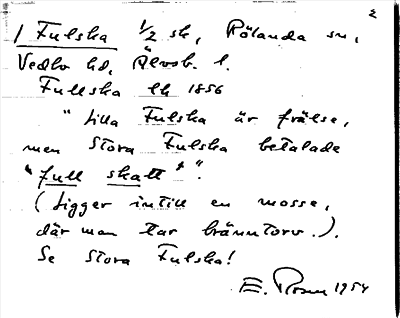 2
/ Fulska 1/2 sk, Rölanda sn,
Vedbo hd, Älvsb. l.
Fullska ek 1856
"Lilla Fulska är frälse,
men Stora Fulska betalade
"full skatt"".
(Ligger intill en mosse,
där man tar bränntorv.).
Se Stora Fulska!
E. Rosen 1954